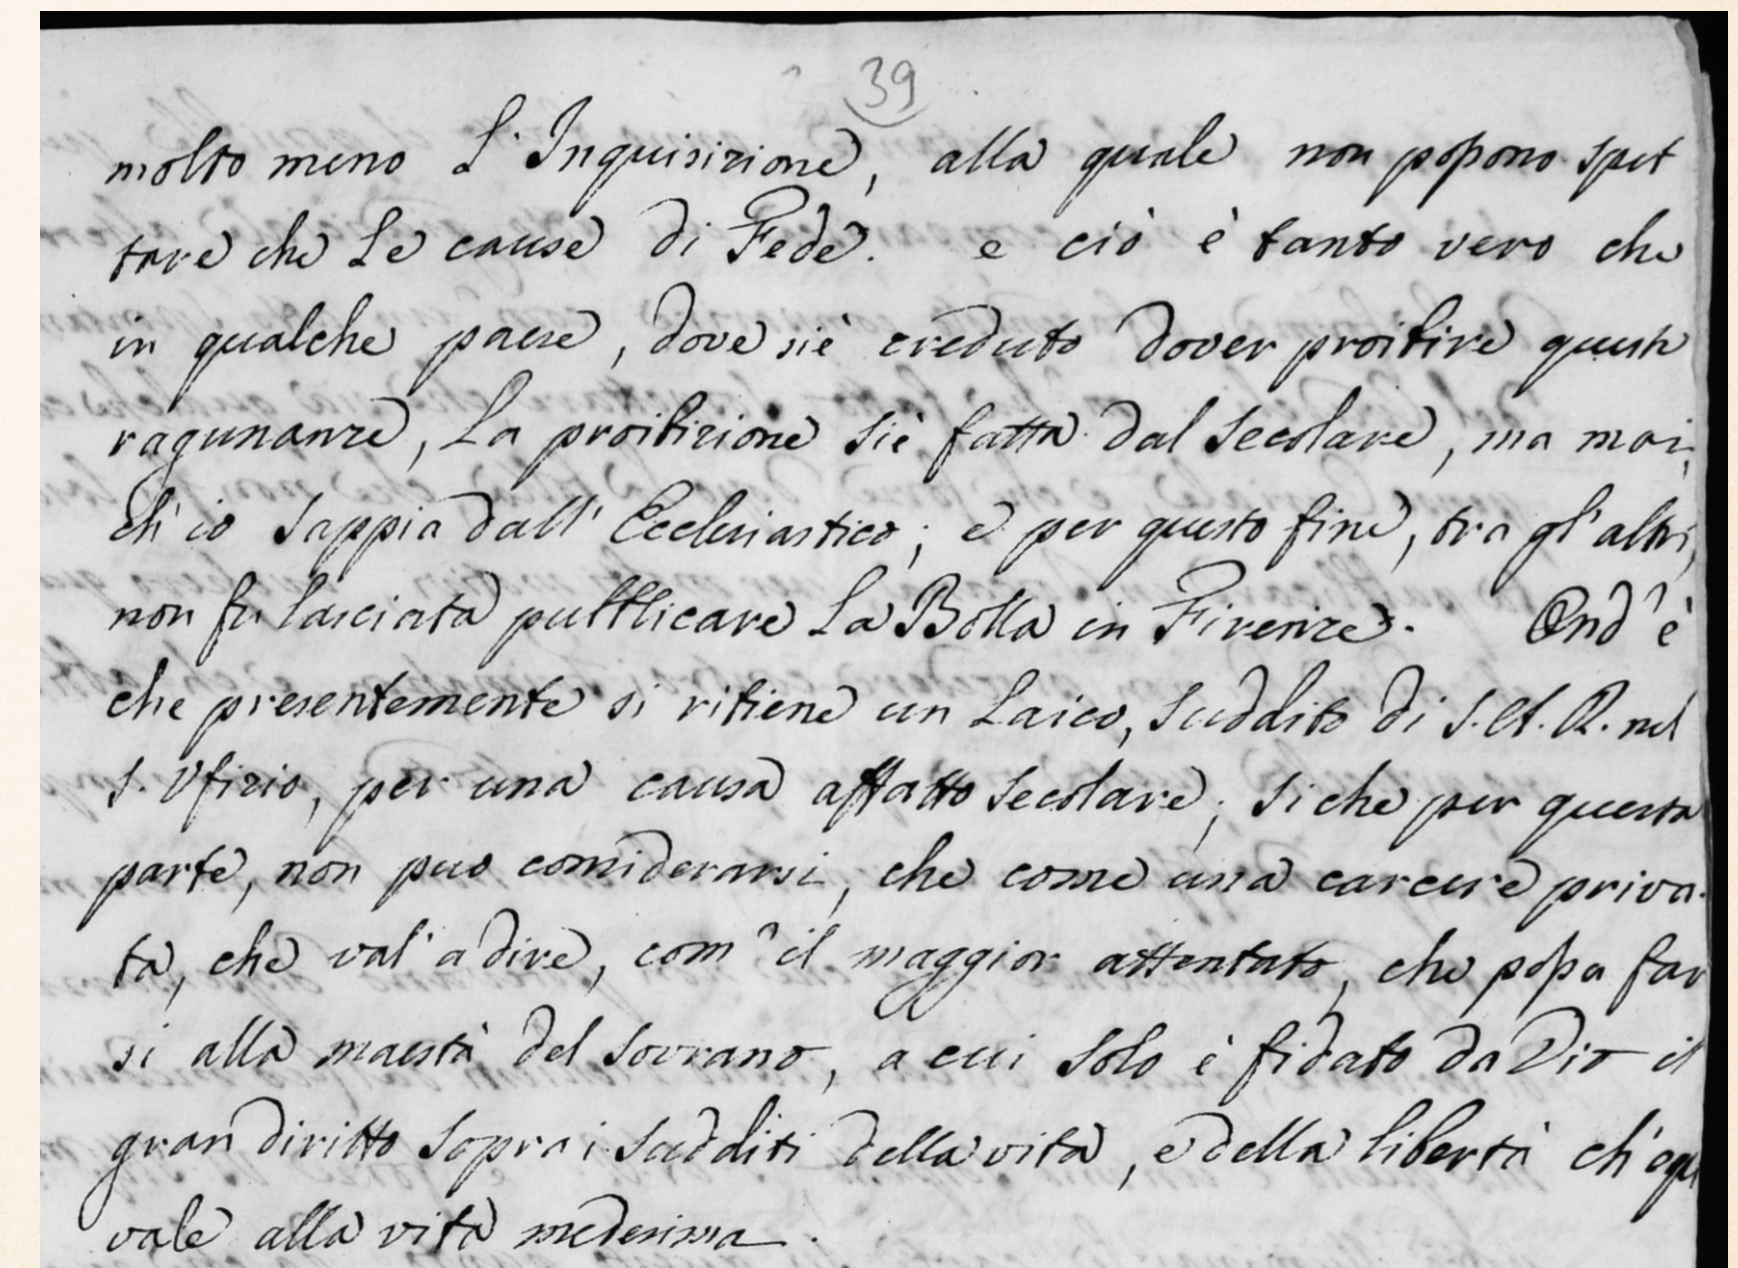 39
molto meno l'Inquisizione, alla quale non possono spet
tare che le cause di Fede. e ciò è tanto vero che
in qualche paese, dove siè creduto dover proibire queste
ragunanze, la proibizione siè fatta dal Secolare, ma mai,
ch'io sappia dall'Ecclesiastico; e per questo fine, tra gl'altri,
non fu lasciata pubblicare la Bolla in Firenze. Ond'è
che presentemente si ritiene un Laico, suddito di S. A. R. nel
S. Ufizio, per una causa affatto secolare; siche per questa
parte, non puo considerarsi, che come una carcere priva-
ta, che val'a dire, com'il maggior attentato, che possa far
si alla maestà del Sovrano, a cui solo è fidato da Dio il
gran diritto sopra i sudditi della vita, e della libertà ch'equi
vale alla vita medesima.